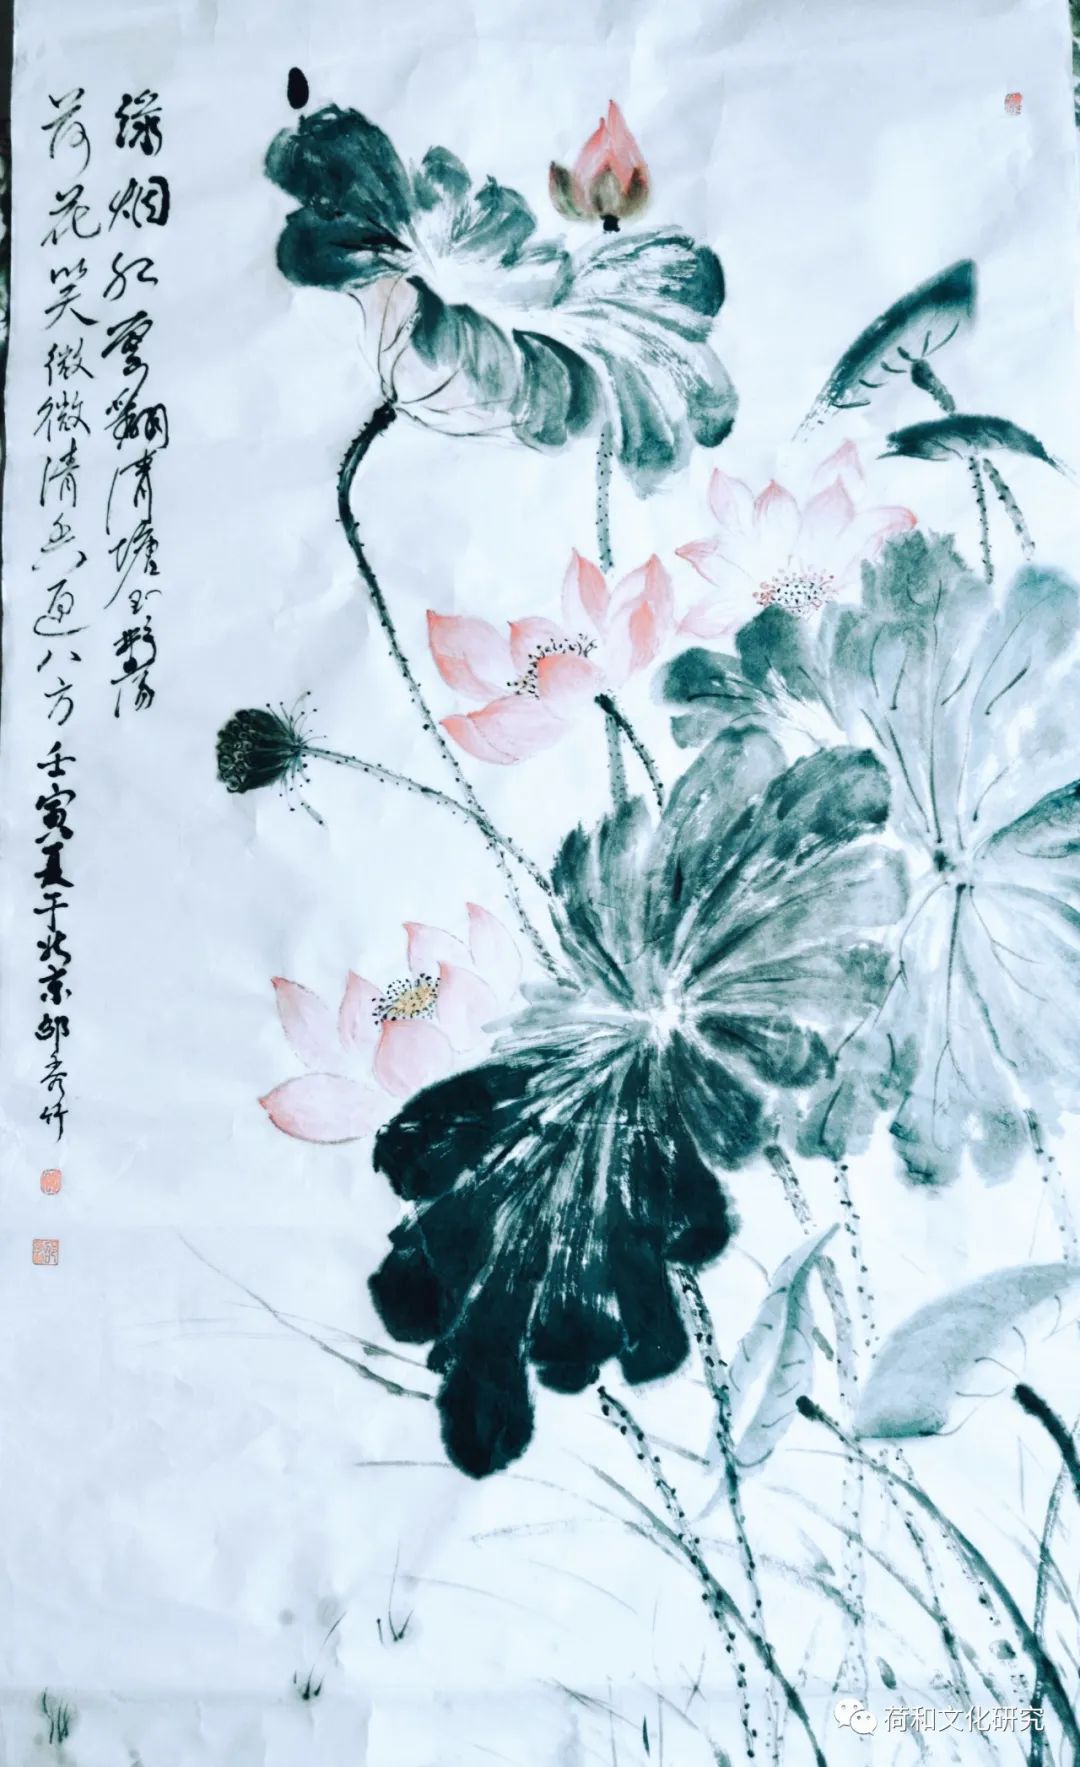 绿烟红雲翻清塘玉影荡
荷花笑微微清香通八方 壬寅夏于北京邵秀竹
荷和文化研究